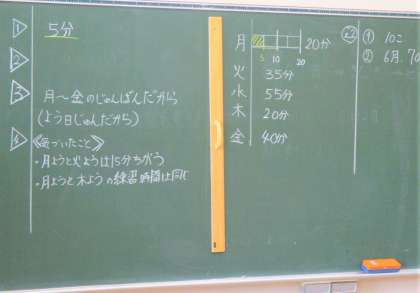 1 5分
2
3 月～金のじゅんばんだから
(よう日じゅんだから)
4 《気づいたこと》
・月ようと火ようは15分ちがう
・月ようと木ようの練習時間は同じ
月 20分
5 10 20
火 35分
水 55分
木 20分
金 40分
22 ① 10こ
② 6月、70